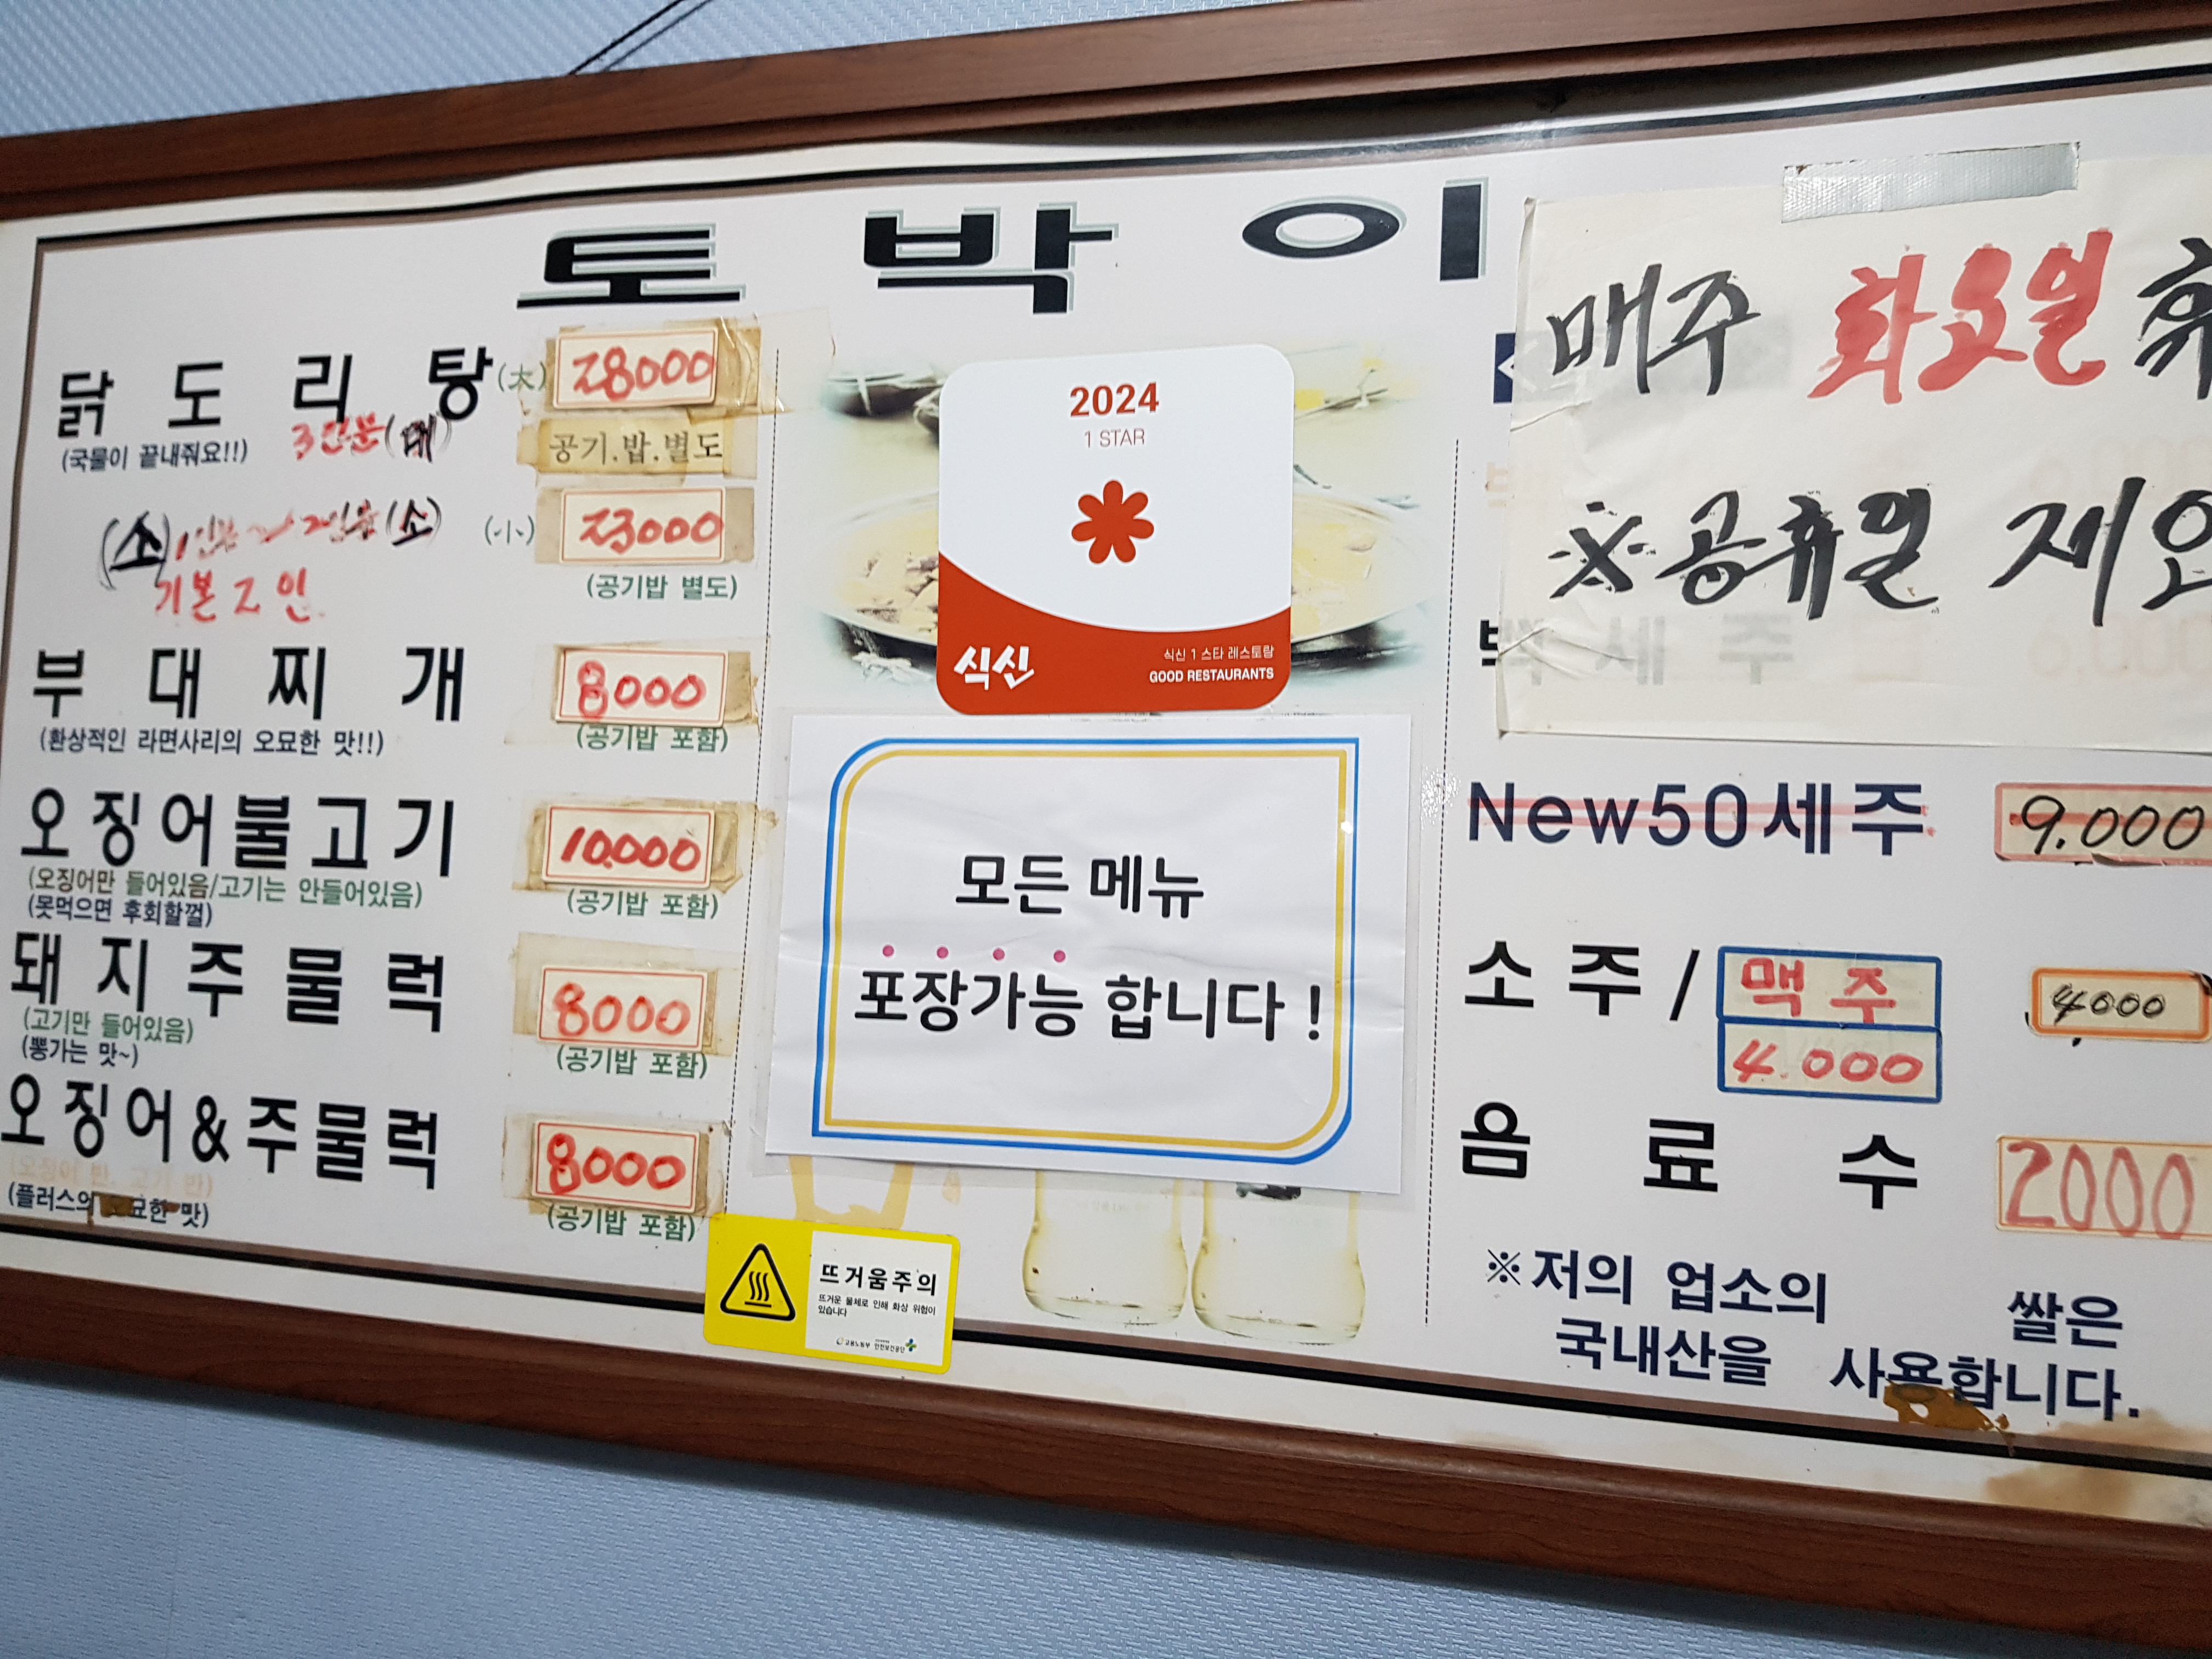 토박이
닭도리탕 (大) 28000
(국물이 끝내줘요!!) 3인분(대) 공기.밥.별도
(소) 1인분~2인분(소) (小) 23000
기본 2인 (공기밥 별도)
부대찌개 8000
(환상적인 라면사리의 오묘한 맛!!) (공기밥 포함)
오징어불고기 10.000
(오징어만 들어있음/고기는 안들어있음) (공기밥 포함)
(못먹으면 후회할껄)
돼지주물럭 8000
(고기만 들어있음) (공기밥 포함)
(뽕가는 맛~)
오징어&주물럭 8000
(오징어 반, 고기 반)
(플러스의 묘한 맛) (공기밥 포함)
2024
1 STAR
식신
식신 1 스타 레스토랑
GOOD RESTAURANTS
모든 메뉴
포장가능 합니다!
뜨거움주의
뜨거운 물체로 인해 화상 위험이
있습니다
고용노동부 안전보건공단
매주 화요일 휴
※공휴일 제외
백세주
New50세주 9.000
소주/맥주 4000
4.000
음료수 2000
※저의 업소의 쌀은
국내산을 사용합니다.